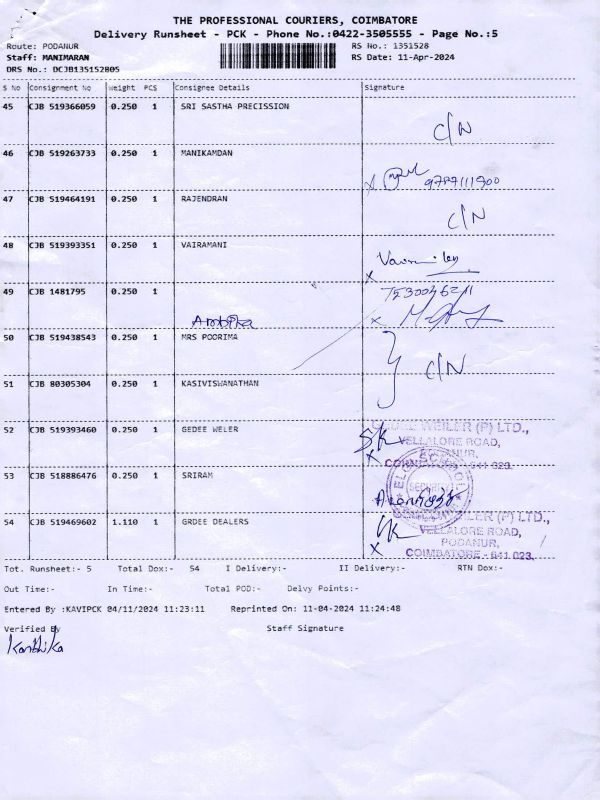 THE PROFESSIONAL COURIERS, COIMBATORE
Delivery Runsheet - PCK - Phone No.:0422-3505555 - Page No.:5
Route: PODANUR RS No.: 1351528
Staff: MANIMARAN RS Date: 11-Apr-2024
DRS No.: DCJB135152805
S No Consignment No Weight PCS Consignee Details Signature
45 CJB 519366059 0.250 1 SRI SASTHA PRECISSION
C/N
46 CJB 519263733 0.250 1 MANIKAMDAN
x
47 CJB 519464191 0.250 1 RAJENDRAN
C/N
48 CJB 519393351 0.250 1 VAIRAMANI
x
49 CJB 1481795 0.250 1
Ambika x
50 CJB 519438543 0.250 1 MRS POORIMA
C/N
51 CJB 80305304 0.250 1 KASIVISWANATHAN
52 CJB 519393460 0.250 1 GEDEE WELER
WEILER (P) LTD.,
VELLALORE ROAD,
PODANUR,
COIMBATORE - 641 023.
x
53 CJB 518886476 0.250 1 SRIRAM
54 CJB 519469602 1.110 1 GRDEE DEALERS
WEILER (P) LTD.,
VELLALORE ROAD,
PODANUR,
COIMBATORE - 641 023.
x
Tot. Runsheet:- 5 Total Dox:- 54 I Delivery:- II Delivery:- RTN Dox:-
Out Time:- In Time:- Total POD:- Delvy Points:-
Entered By :KAVIPCK 04/11/2024 11:23:11 Reprinted On: 11-04-2024 11:24:48
Verified By Staff Signature